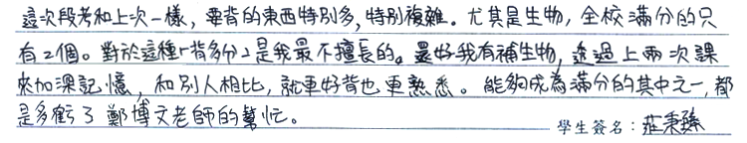 這次段考和上次一樣，要背的東西特別多，特別複雜。尤其是生物，全校滿分的只
有2個。對於這種「背多分」是我最不擅長的。還好我有補生物，透過上兩次課
來加深記憶，和別人相比，就更好背也更熟悉。能夠成為滿分的其中之一，都
是多虧了鄭博文老師的幫忙。
學生簽名：莊秉孫